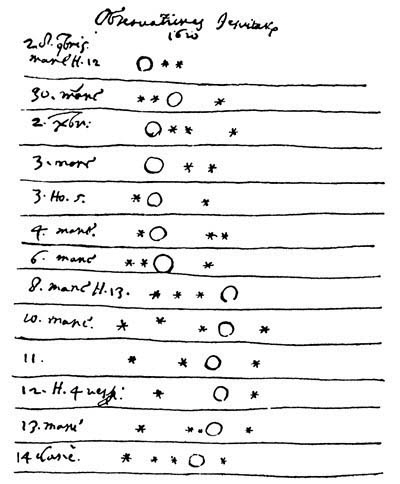 Observationes Jesuitarum
1610
2. d. 9bris.
mane H. 12
30. mane
2. Xbr:
3. mane
3. Ho. 5.
4. mane.
6. mane
8. mane H. 13.
10. mane.
11.
12. H. 4 vesp:
13. mane
14